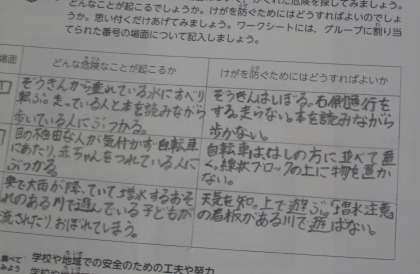 くれた危険を探してみましょう。
どんなことが起こるでしょうか。けがを防ぐためにはどうすればよいのでしょ
うか。思い付くだけあげてみましょう。ワークシートには、グループに割り当
てられた番号の場面について記入しましょう。
場面 どんな危険なことが起こるか けがを防ぐためにはどうすればよいか
ぞうきんから垂れている水にすべり
転ぶ。走っている人と本を読みながら
歩いている人にぶつかる。
ぞうきんはしぼる。右側通行を
する。走らない。本を読みながら
歩かない。
目の不自由な人が気付かず自転車
にあたり、赤ちゃんをつれている人に
ぶつかる。
自転車は、はしの方に並べて置
く。線状ブロックの上に物を置か
ない。
奥で大雨が降っていて増水するおそ
れのある川で遊んでいる子どもが
流されたり、おぼれてしまう。
天気を知る。上で遊ぶ。「増水注意」
の看板がある川で遊ばない。
調べてみよう
学校や地域での安全のための工夫や努力